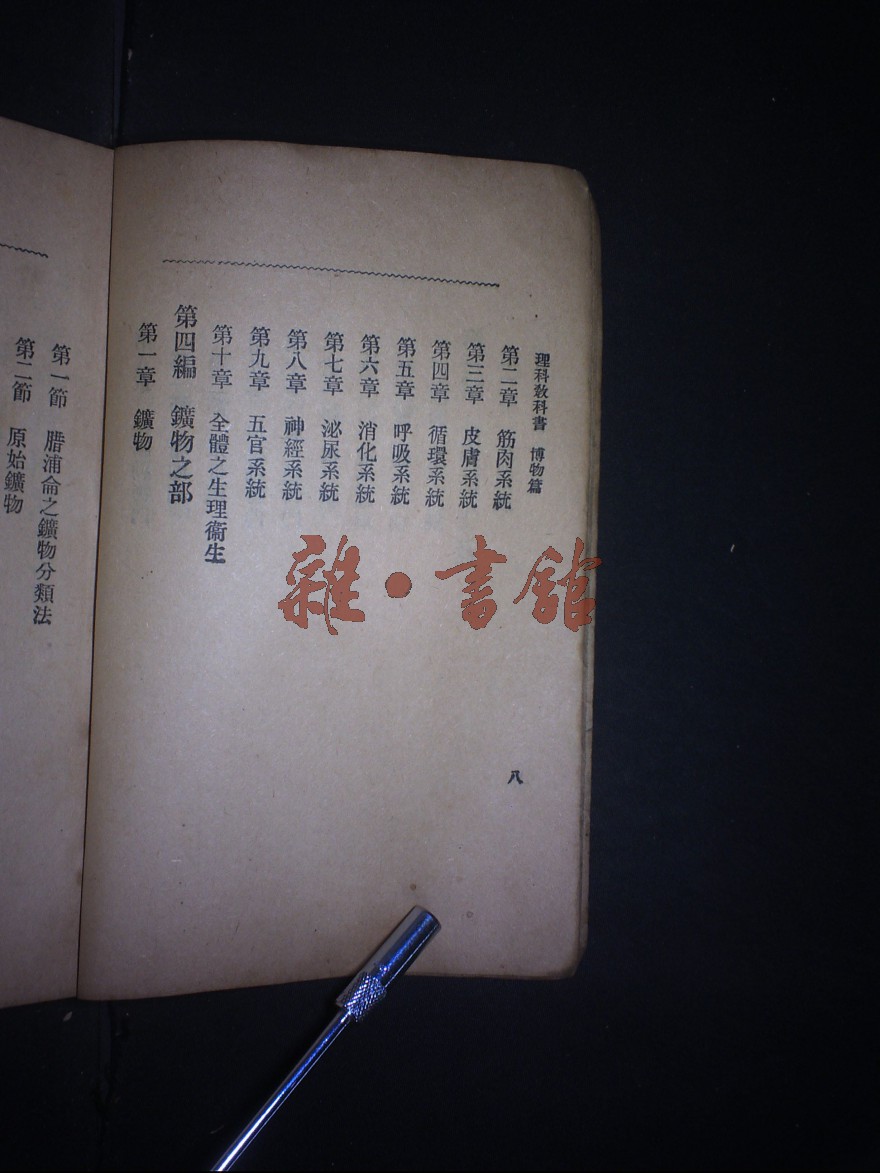 理科教科書 博物篇
第二章 筋肉系統
第三章 皮膚系統
第四章 循環系統
第五章 呼吸系統
第六章 消化系統
第七章 泌尿系統
第八章 神經系統
第九章 五官系統
第十章 全體之生理衞生
第四編 鑛物之部
第一章 鑛物
八
第一節 腊浦侖之鑛物分類法
第二節 原始鑛物
雜·書館